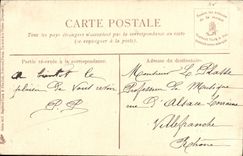 CARTE POSTALE
Tous les pays étrangers n'acceptent pas la correspondance au recto
(se renseigner à la poste)
Partie réservée à la correspondance.
Adresse du destinataire.
a bientot le
plaisir de vous
P. P.
Monsieur
Professeur de Musique
Rue d'Alsace Lorraine
Villefranche
Rhône